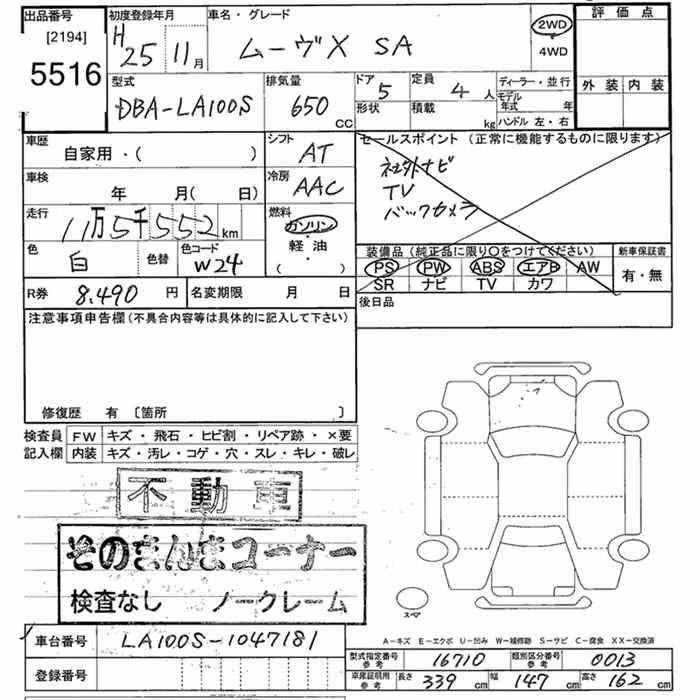 出品番号
[2194]
5516
初度登録年月
H25 11月
車名・グレード
ムーヴX SA
2WD
4WD
評価点
外装 内装
型式
DBA-LA100S
排気量
650 CC
ドア 5
形状
定員 4人
積載 kg
ディーラー・並行
モデル年式 年
ハンドル 左・右
車歴
自家用・( )
シフト
AT
セールスポイント (正常に機能するものに限ります)
社外ナビ
TV
バックカメラ
車検
年 月( 日)
冷房
AAC
走行
11万5千552km
燃料
ガソリン
・
軽油
・
( )
色
白
色替
色コード
W24
装備品 (純正品に限り○をつけてください)
PS PW ABS エアB AW
SR ナビ TV カワ
新車保証書
有・無
R券 8,490 円
名変期限 月 日
後日品
注意事項申告欄(不具合内容等は具体的に記入して下さい)
修復歴 有 〔箇所 〕
検査員記入欄
FW キズ・飛石・ヒビ割・リペア跡・×要
内装 キズ・汚レ・コゲ・穴・スレ・キレ・破レ
不動車
そのまんまコーナー
検査なし ノークレーム
スペア
A-キズ E-エクボ U-凹み W-補修跡 S-サビ C-腐食 XX-交換済
車台番号 LA100S-1047181
登録番号
型式指定番号 参考 16710 類別区分番号 参考 0013
車庫証明用 参考 長さ 339cm 幅 147cm 高さ 162cm